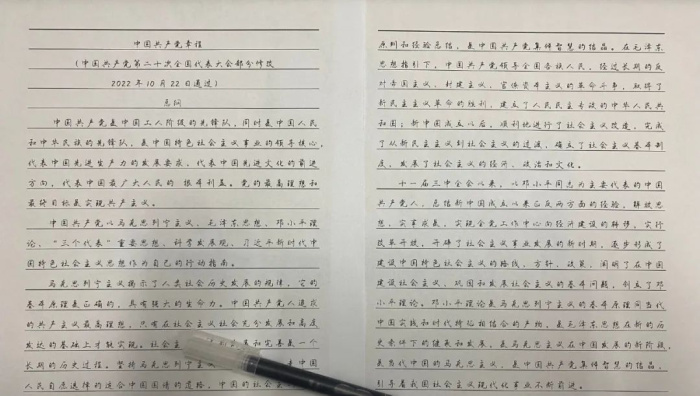 中国共产党章程
（中国共产党第二十次全国代表大会部分修改
2022年10月22日通过）
总纲
中国共产党是中国工人阶级的先锋队，同时是中国人民
和中华民族的先锋队，是中国特色社会主义事业的领导核心，
代表中国先进生产力的发展要求，代表中国先进文化的前进
方向，代表中国最广大人民的 根本利益。党的最高理想和
最终目标是实现共产主义。
中国共产党以马克思列宁主义、毛泽东思想、邓小平理
论、“三个代表”重要思想、科学发展观、习近平新时代中
国特色社会主义思想作为自己的行动指南。
马克思列宁主义揭示了人类社会历史发展的规律，它的
基本原理是正确的，具有强大的生命力。中国共产党人追求
的共产主义最高理想，只有在社会主义社会充分发展和高度
发达的基础上才能实现。社会主 和完善是一个
长期的历史过程。坚持马克思列宁主 中国
人民自愿选择的适合中国国情的道路，中国的社会主
原则和经验总结，是中国共产党集体智慧的结晶。在毛泽东
思想指引下，中国共产党领导全国各族人民，经过长期的反
对帝国主义、封建主义、官僚资本主义的革命斗争，取得了
新民主主义革命的胜利，建立了人民民主专政的中华人民共
和国；新中国成立以后，顺利地进行了社会主义改造，完成
了从新民主主义到社会主义的过渡，确立了社会主义基本制
度，发展了社会主义的经济、政治和文化。
十一届三中全会以来，以邓小平同志为主要代表的中国
共产党人，总结新中国成立以来正反两方面的经验，解放思
想，实事求是，实现全党工作中心向经济建设的转移，实行
改革开放，开辟了社会主义事业发展的新时期，逐步形成了
建设中国特色社会主义的路线、方针、政策，阐明了在中国
建设社会主义、巩固和发展社会主义的基本问题，创立了邓
小平理论。邓小平理论是马克思列宁主义的基本原理同当代
中国实践和时代特征相结合的产物，是毛泽东思想在新的历
史条件下的继承和发展，是马克思主义在中国发展的新阶段，
是当代中国的马克思主义，是中国共产党集体智慧的结晶，
引导着我国社会主义现代化事业不断前进。